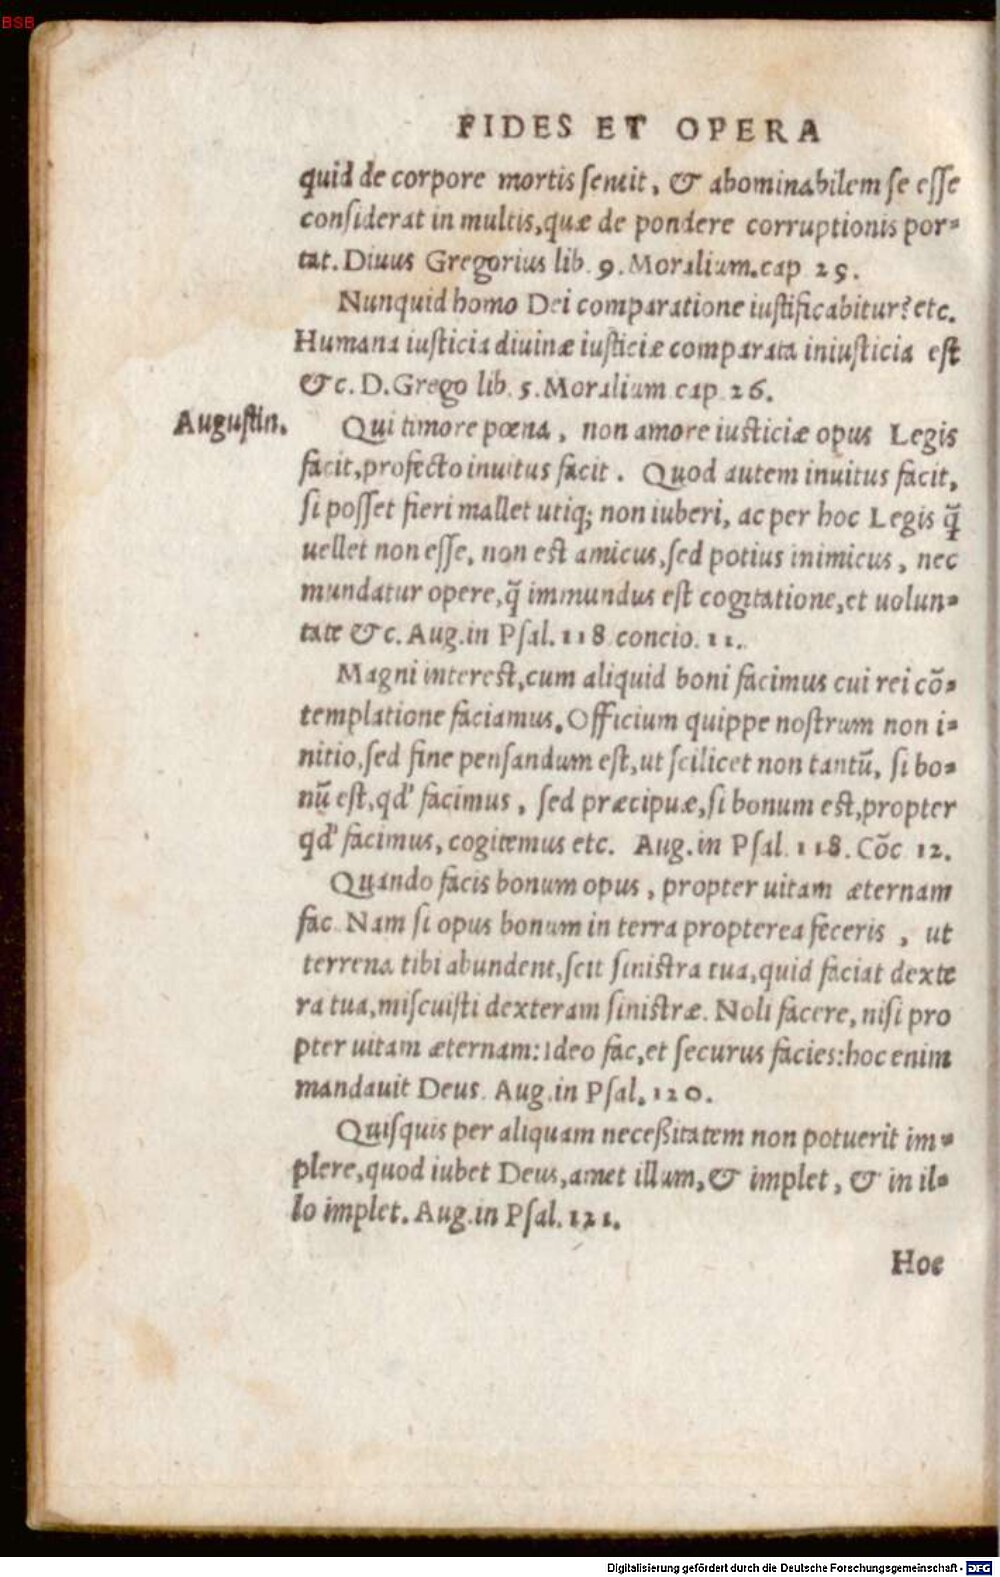 BSB
FIDES ET OPERA
quid de corpore mortis sentit, & abominabilem se esse
considerat in multis, quæ de pondere corruptionis por-
tat. Diuus Gregorius lib. 9. Moralium. cap 25.
Nunquid homo Dei comparatione iustificabitur? etc.
Humana iusticia diuinæ iusticiæ comparata iniusticia est
&c. D. Grego lib. 5. Moralium cap 26.
Augustin.
Qui timore pœna, non amore iusticiæ opus Legis
facit, profecto inuitus facit. Quod autem inuitus facit,
si posset fieri mallet utiq; non iuberi, ac per hoc Legis q̃
uellet non esse, non est amicus, sed potius inimicus, nec
mundatur opere, q̃ immundus est cogitatione, et uolun-
tate &c. Aug. in Psal. 118 concio. 11.
Magni interest, cum aliquid boni facimus cui rei cõ-
templatione faciamus. Officium quippe nostrum non i-
nitio, sed fine pensandum est, ut scilicet non tantũ, si bo-
nũ est, qd' facimus, sed præcipuæ, si bonum est, propter
qd' facimus, cogitemus etc. Aug. in Psal. 118. Cõc 12.
Quando facis bonum opus, propter uitam æternam
fac. Nam si opus bonum in terra propterea feceris, ut
terrena tibi abundent, scit sinistra tua, quid faciat dexte
ra tua, miscuisti dexteram sinistræ. Noli facere, nisi pro
pter uitam æternam: Ideo fac, et securus facies: hoc enim
mandauit Deus. Aug. in Psal. 120.
Quisquis per aliquam necessitatem non potuerit im-
plere, quod iubet Deus, amet illum, & implet, & in il-
lo implet. Aug. in Psal. 121.
Hoc
Digitalisierung gefördert durch die Deutsche Forschungsgemeinschaft - DFG